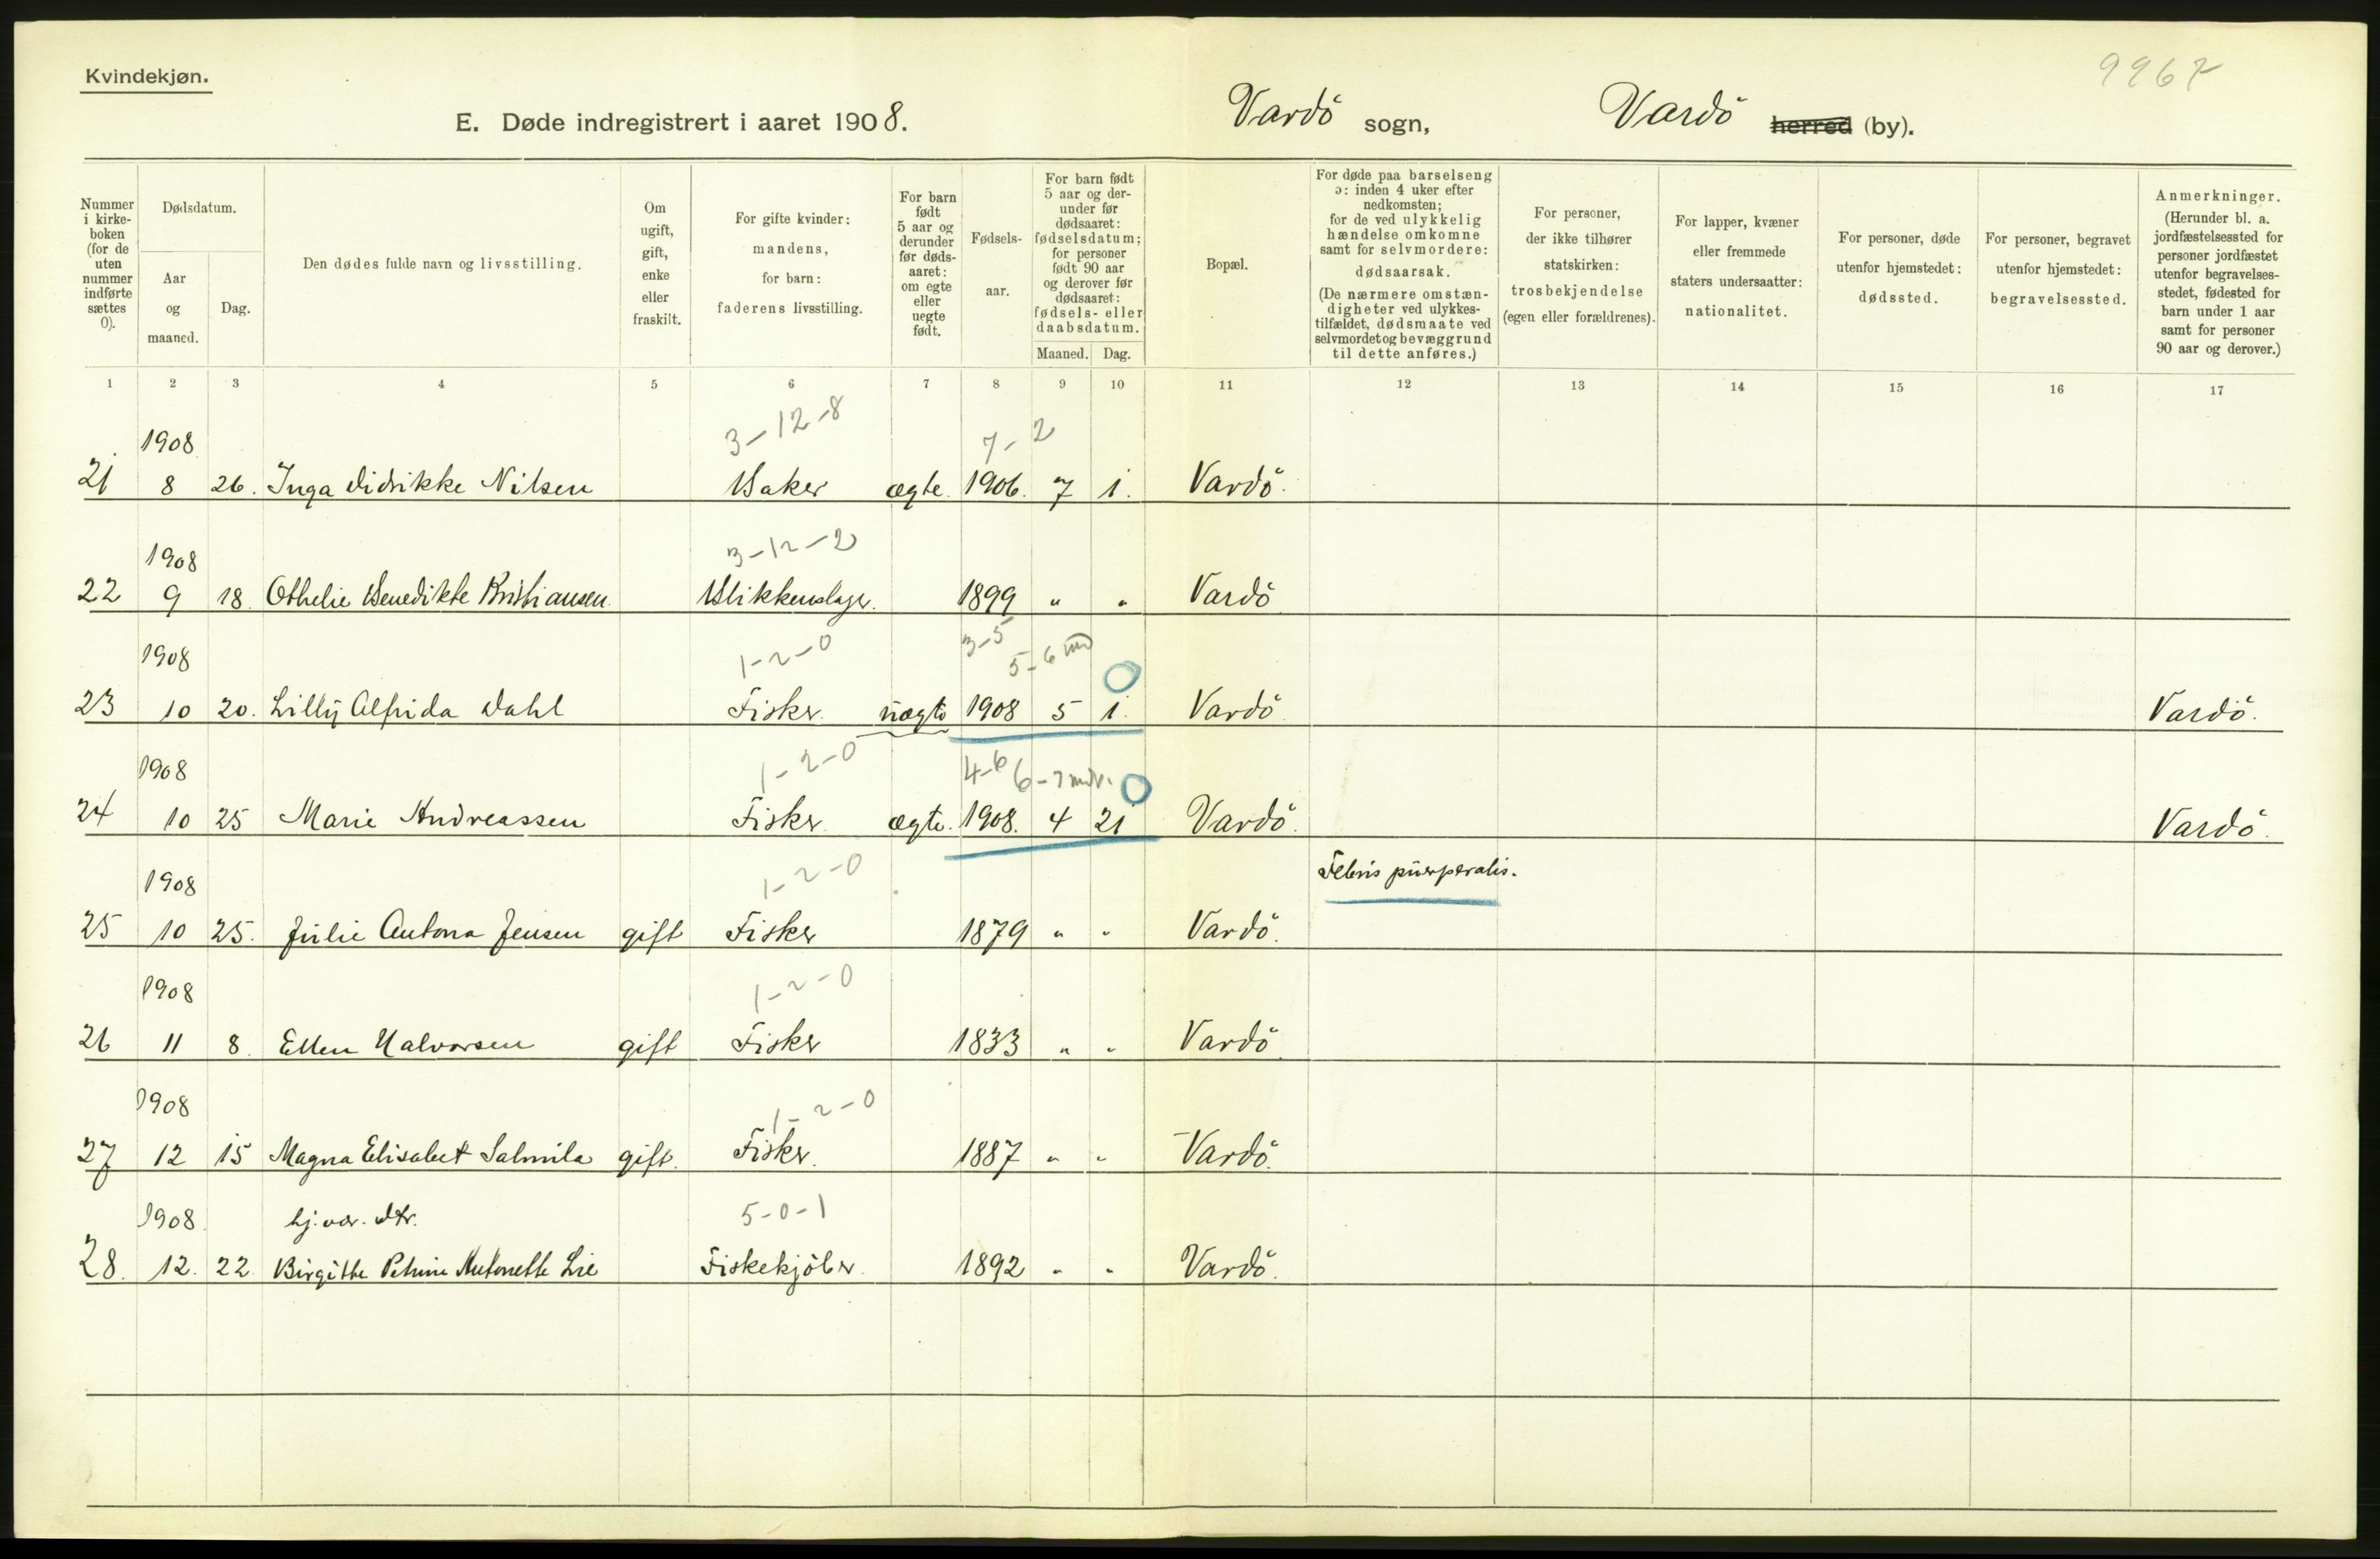 Kvindekjøn.
9967
E. Døde indregistrert i aaret 1908.
Vardö sogn,
Vardö herred (by).
Nummer i kirke-boken (for de uten nummer indførte sættes 0).
Dødsdatum.
Aar og maaned.
Dag.
Den dødes fulde navn og livsstilling.
Om ugift, gift, enke eller fraskilt.
For gifte kvinder: mandens, for barn: faderens livsstilling.
For barn født 5 aar og derunder før døds-aaret: om egte eller uegte født.
Fødsels-aar.
For barn født 5 aar og der-under før dødsaaret: fødselsdatum; for personer født 90 aar og derover før dødsaaret: fødsels- eller daabsdatum.
Maaned.
Dag.
Bopæl.
For døde paa barselseng ɔ: inden 4 uker efter nedkomsten; for de ved ulykkelig hændelse omkomne samt for selvmordere: dødsaarsak. (De nærmere omstæn-digheter ved ulykkes-tilfældet, dødsmaate ved selvmordet og bevæggrund til dette anføres.)
For personer, der ikke tilhører statskirken: trosbekjendelse (egen eller forældrenes).
For lapper, kvæner eller fremmede staters undersaatter: nationalitet.
For personer, døde utenfor hjemstedet: dødssted.
For personer, begravet utenfor hjemstedet: begravelsessted.
Anmerkninger. (Herunder bl. a. jordfæstelsessted for personer jordfæstet utenfor begravelses-stedet, fødested for barn under 1 aar samt for personer 90 aar og derover.)
1 2 3 4 5 6 7 8 9 10 11 12 13 14 15 16 17
1908 3-12-8 7-2
21 8 26. Inga Didrikke Nilsen Baker ægte. 1906. 7 1. Vardö.
1908 3-12-2
22 9 18. Othelie Benedikte Kristiansen Blikkenslager. 1899 " " Vardö
1908 1-2-0 3-5 5-6 md 0
23 10 20. Lilly Alfrida Dahl Fisker. uægte 1908 5 1. Vardö Vardö.
1908 1-2-0 4-6 6-7 mdr. 0
24 10 25 Marie Andreassen Fisker. ægte. 1908. 4 21 Vardö. Vardö.
1908 1-2-0 Febris puerperalis.
25 10 25. Julie Antona Jensen gift Fisker 1879 " " Vardö.
1908 1-2-0
26 11 8. Ellen Halvorsen gift Fisker 1833 " " Vardö
1908 1-2-0
27 12 15 Magna Elisabet Salmila gift. Fisker. 1887 " " Vardö.
1908. hj. vær. dtr. 5-0-1
28. 12. 22. Birgitte Petrine Antonette Lie Fiskekjöber. 1892 " " Vardö.